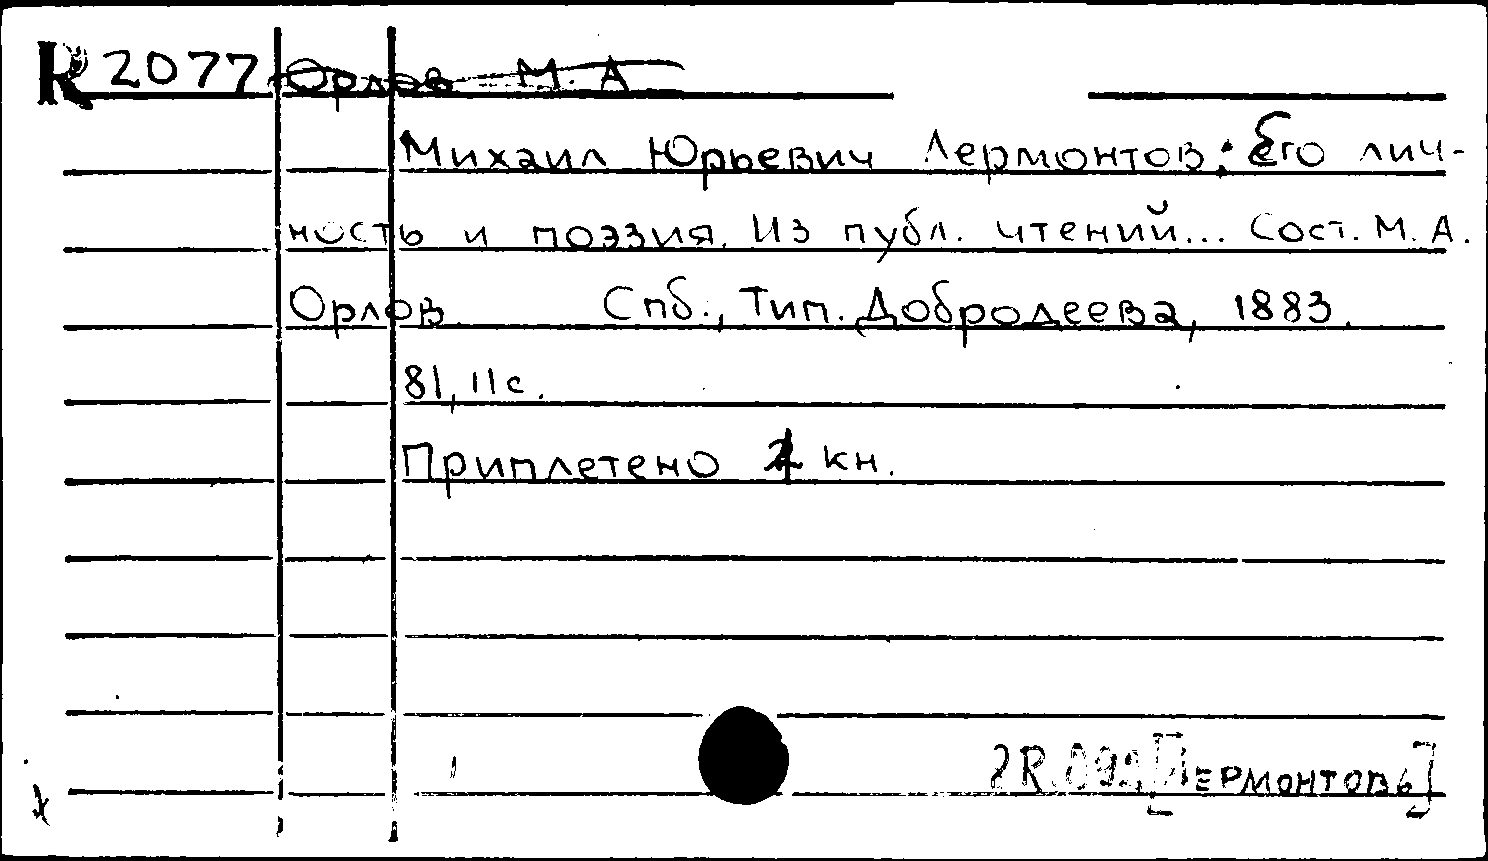 R 2077 Орлов М. А
Михаил Юрьевич Лермонтов: Его лич-
ность и поэзия. Из публ. чтений... Сост. М. А.
Орлов Спб., Тип. Добродеева, 1883.
81, II с.
Приплетено кн.
[Лермонтовъ]